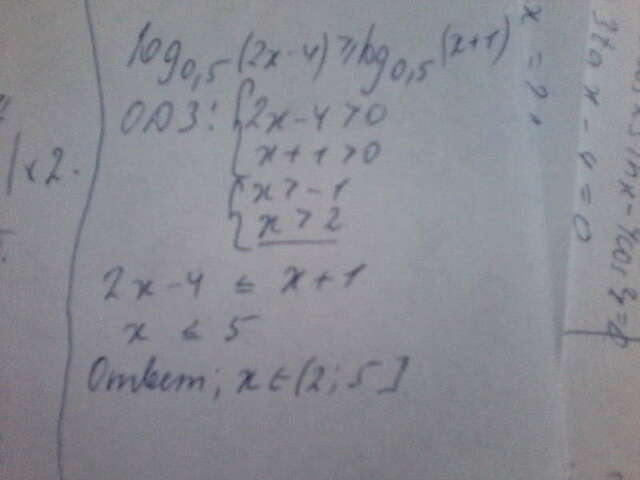 log0,5(2x-4) ≥ log0,5(x+1)
ОДЗ: {2x-4>0
x+1>0
{x>-1
x>2
2x-4 ≤ x+1
x ≤ 5
Ответ; x∈(2; 5]